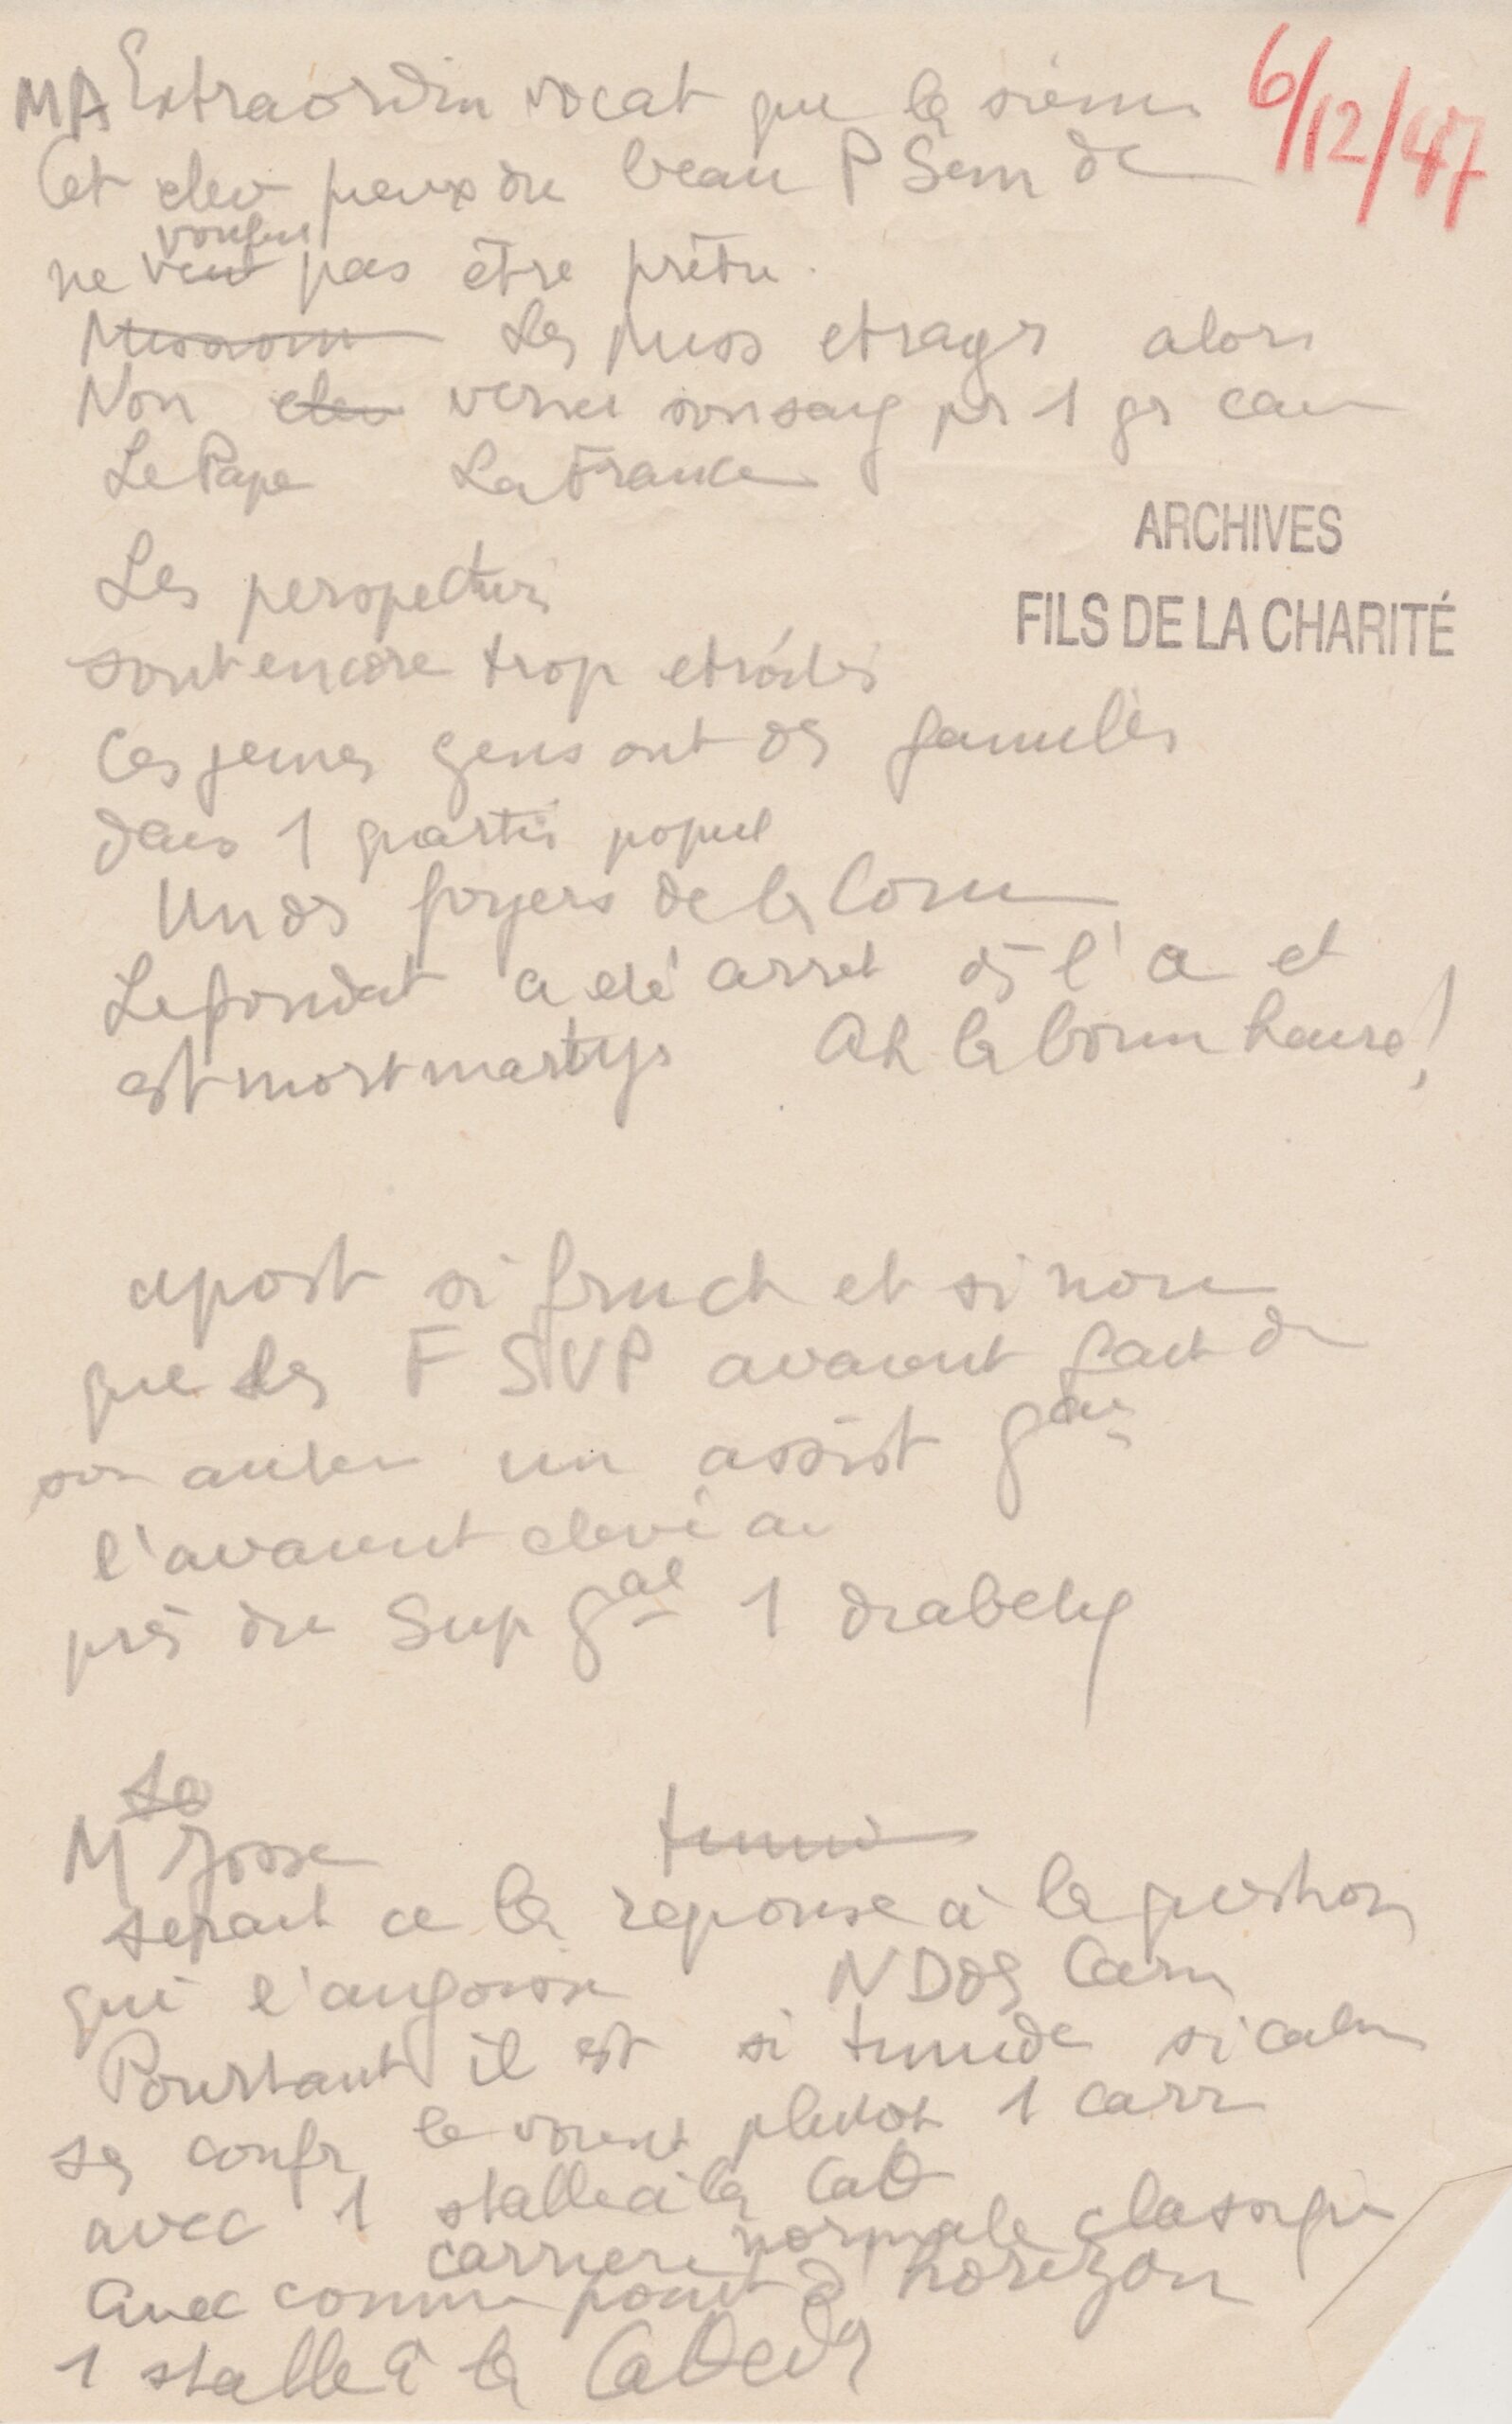 MA Extraordin vocat que la sienne 6/12/47
Cet elev pieux du beau P Sem de
voulus
ne veut pas être prêtre.
Les miss etrag alors
Non elev verser son sang pr 1 gr cau
Le Pape La France
ARCHIVES
FILS DE LA CHARITÉ
Les perspectives
sont encore trop etroites
Ces jeunes gens ont des familles
dans 1 quartier popul
Un des foyers de la Com
Le fondat a été arrêt ds l'a et
est mort martyr Ah la bonne heure!
apost si fruct et si nom
que les F SVP avaient fait de
son auteur un assist Gal
l'avaient elevé au
près du Sup Gal 1
sa
M
serait ce la reponse à la question
qui l'angoisse ND des Cam
Pourtant il est si timide si calm
ses confr le voient plutot 1 carr
avec 1 stalle à la Cath
carriere normale classique
avec comme point d'horizon
1 stalle à la Cathedr